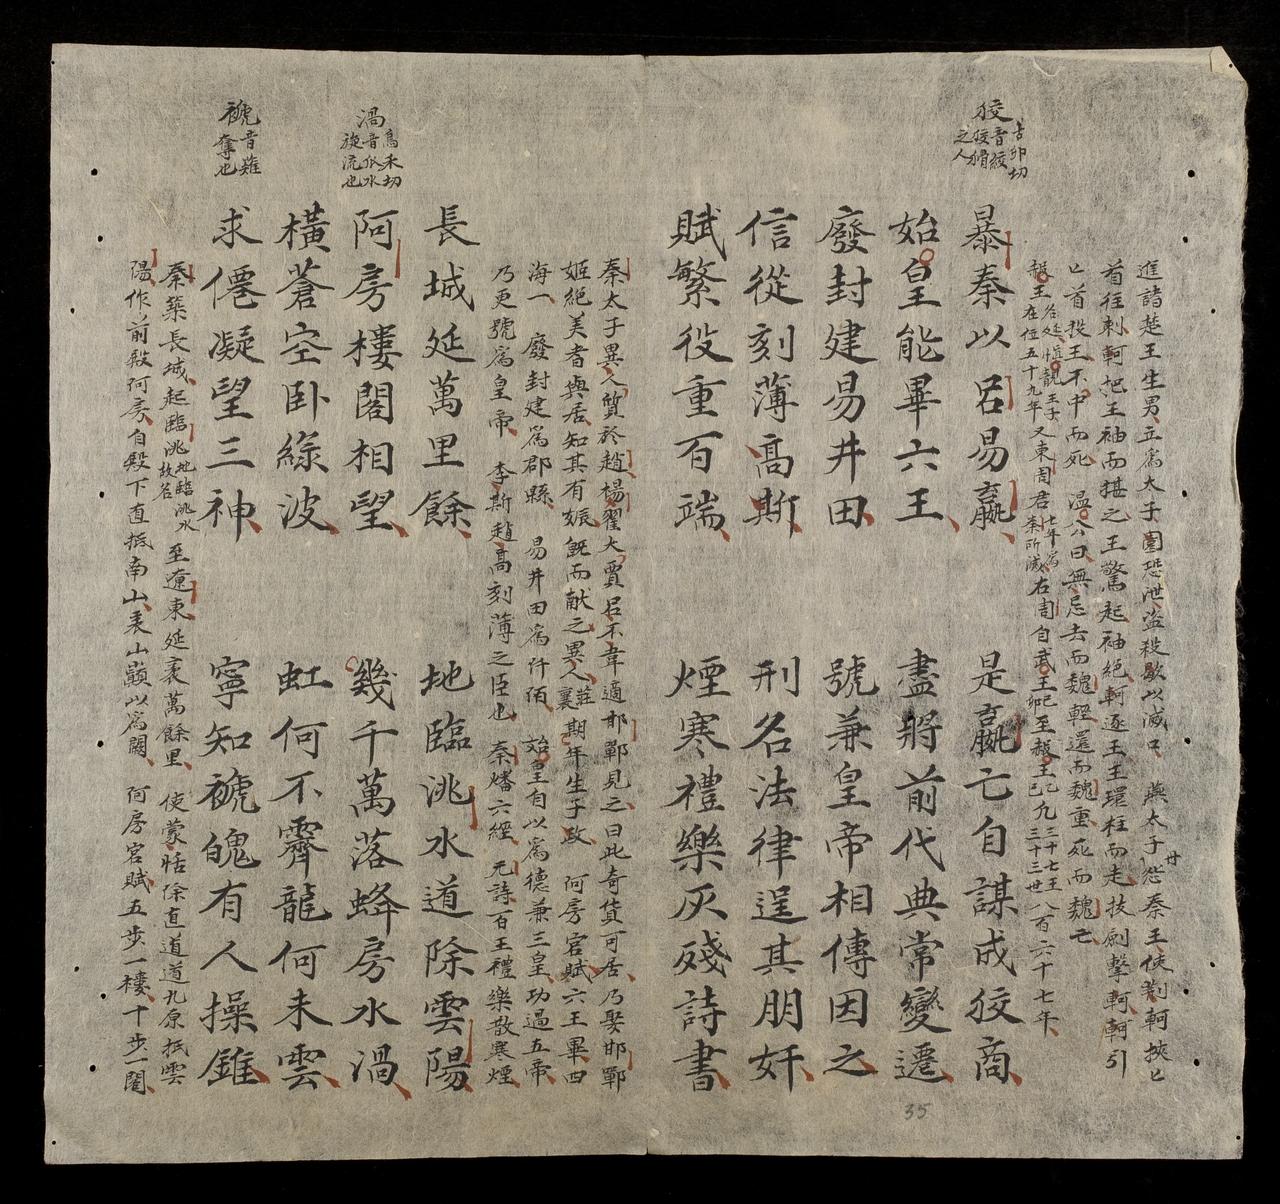 進諸楚王生男立爲太子園恐泄盜殺歇以滅口 燕太子丹怨秦王使荆軻挾匕
首往刺軻把王袖而揕之王驚起袖絕軻逐王王環柱而走拔劍擊軻軻引
匕首投王不中而死 溫公曰無忌去而魏輕還而魏重死而魏亡
赧王名延愼靚王子在位五十九年又東周君七年爲秦所滅右周自武王己卯至赧王乙巳九三十七王三十三世八百六十七年
狡古卯切音絞狡猾之人
暴秦以呂易嬴 是嬴亡自謀成狡商
始皇能畢六王 盡將前代典常變遷
廢封建易井田 號兼皇帝相傳因之
信從刻薄高斯 刑名法律逞其朋奸
賦繁役重百端 煙寒禮樂灰殘詩書
秦太子異人質於趙楊翟大賈呂不韋適邯鄲見之曰此奇貨可居乃娶邯鄲
姬絕美者與居知其有娠旣而献之異人莊襄期年生子政 阿房宮賦六王畢四
海一 廢封建爲郡縣 易井田爲仟佰 始皇自以爲德兼三皇功過五帝
乃更號爲皇帝 李斯趙高刻薄之臣也 秦燔六經 元詩百王禮樂散寒煙
長城延萬里餘 地臨洮水道除雲陽
渦烏禾切音倭水旋流也
阿房樓閣相望 幾千萬落蜂房水渦
橫蒼空卧綠波 虹何不霽龍何未雲
褫音雉奪也
求僊凝望三神 寧知褫魄有人操錐
秦築長城起臨洮地臨洮水故名至遼東延袤萬餘里 使蒙恬除直道道九原抵雲
陽作前殿阿房自殿下直抵南山表山巔以爲闕 阿房宮賦五步一樓十步一閣
35